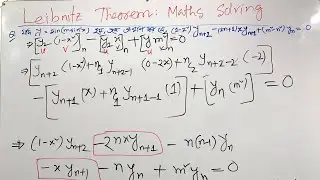 Leibnitz Theorem: Maths Solving
y = sin(m sin⁻¹x) (1-x²)y_{n+2} -(2n+1)xy_{n+1}+(m²-n²)y_n=0
⇒[y₂ (1-x²)]_n - [y₁ x]_n + [y m²]_n = 0
⇒[y_{n+2} (1-x²) + n_{c₁} y_{n+2-1} (0-2x) + n_{c₂} y_{n+2-2} (-2)]
-[y_{n+1} (x) + n_{c₁} y_{n+1-1} (1)] + [y_n (m²)] = 0
⇒ (1-x²) y_{n+2} -2nx y_{n+1} - n(n-1) y_n
-x y_{n+1} - n y_n + m² y_n = 0